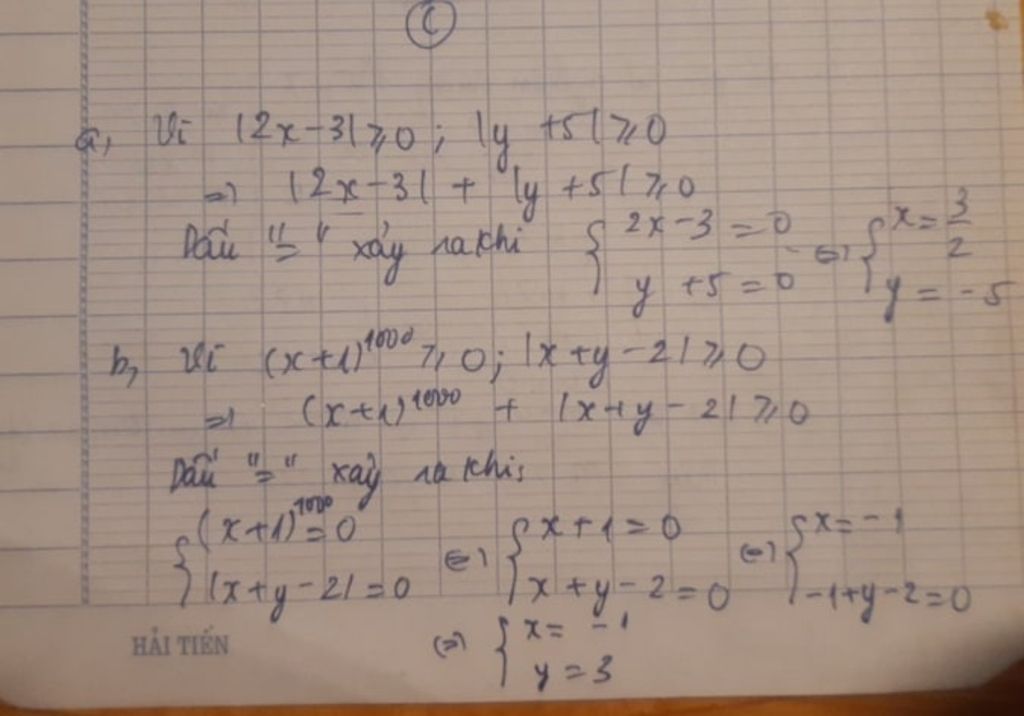 C
a, Vì |2x-3| ≥ 0; |y+5| ≥ 0
=> |2x-3| + |y+5| ≥ 0
Dấu "=" xảy ra khi { 2x-3=0 y+5=0 <=> { x=3/2 y=-5
b, Vì (x+1)^1000 ≥ 0; |x+y-2| ≥ 0
=> (x+1)^1000 + |x+y-2| ≥ 0
Dấu "=" xảy ra khi:
{ (x+1)^1000=0 |x+y-2|=0 <=> { x+1=0 x+y-2=0 <=> { x=-1 -1+y-2=0
HẢI TIẾN
<=> { x=-1 y=3